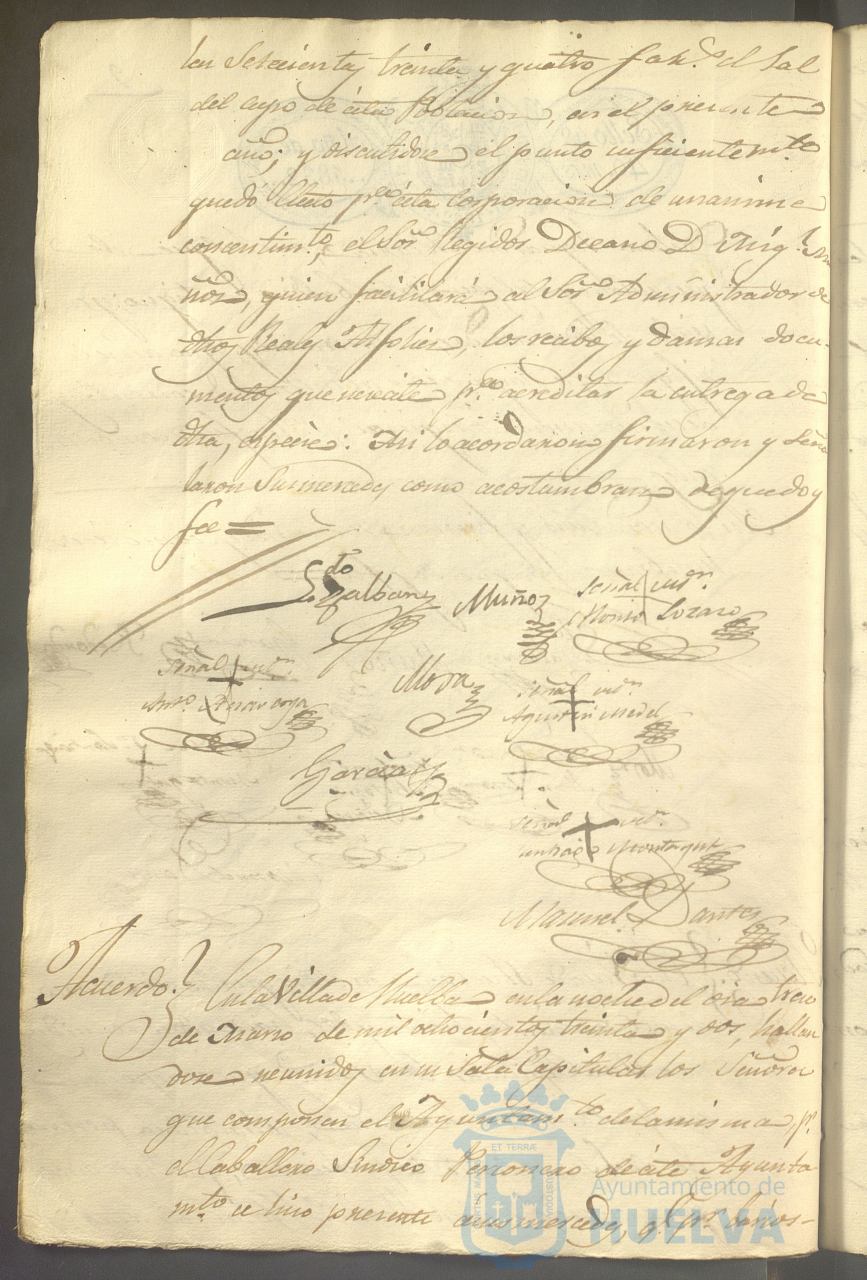 las Setecientas treinta y quatro fan.s de Sal
del cupo de ésta Poblacion, en el presente
año; y discutidose el punto suficientem.te
quedó electo p.r ésta Corporacion de unanime
concentim.to, el Sor. Regidor Decano D. Mig.l Mu
ñoz, quien facilitará al Sor. Administrador de
dhos Reales Alfolies, los recibos y demas docu-
mentos que necesite p.a acreditar la entrega de
dha, especie: Asi lo acordaron firmaron y Seña
laron Sus mercedes como acostumbran de que doy
fee =
Galbany Muñoz Señal del Sr.
Alonso Lozano
Señal
Anto. Mora Señal
Agustin Medel
Garcia
Señal
Montagut
Manuel Santos
Acuerdo. En la Villa de Huelba en la noche del dia trece
de Marzo de mil ochocientos treinta y dos, hallan
dose reunidos en su Sala Capitular los Señores
que componen el Ayuntam.to de la misma, p.r
el Caballero Sindico Personero de éste Ayunta
m.to se hizo presente á sus mercedes, q.e p.r varios-
ET TERRÆ
Ayuntamiento de
HUELVA